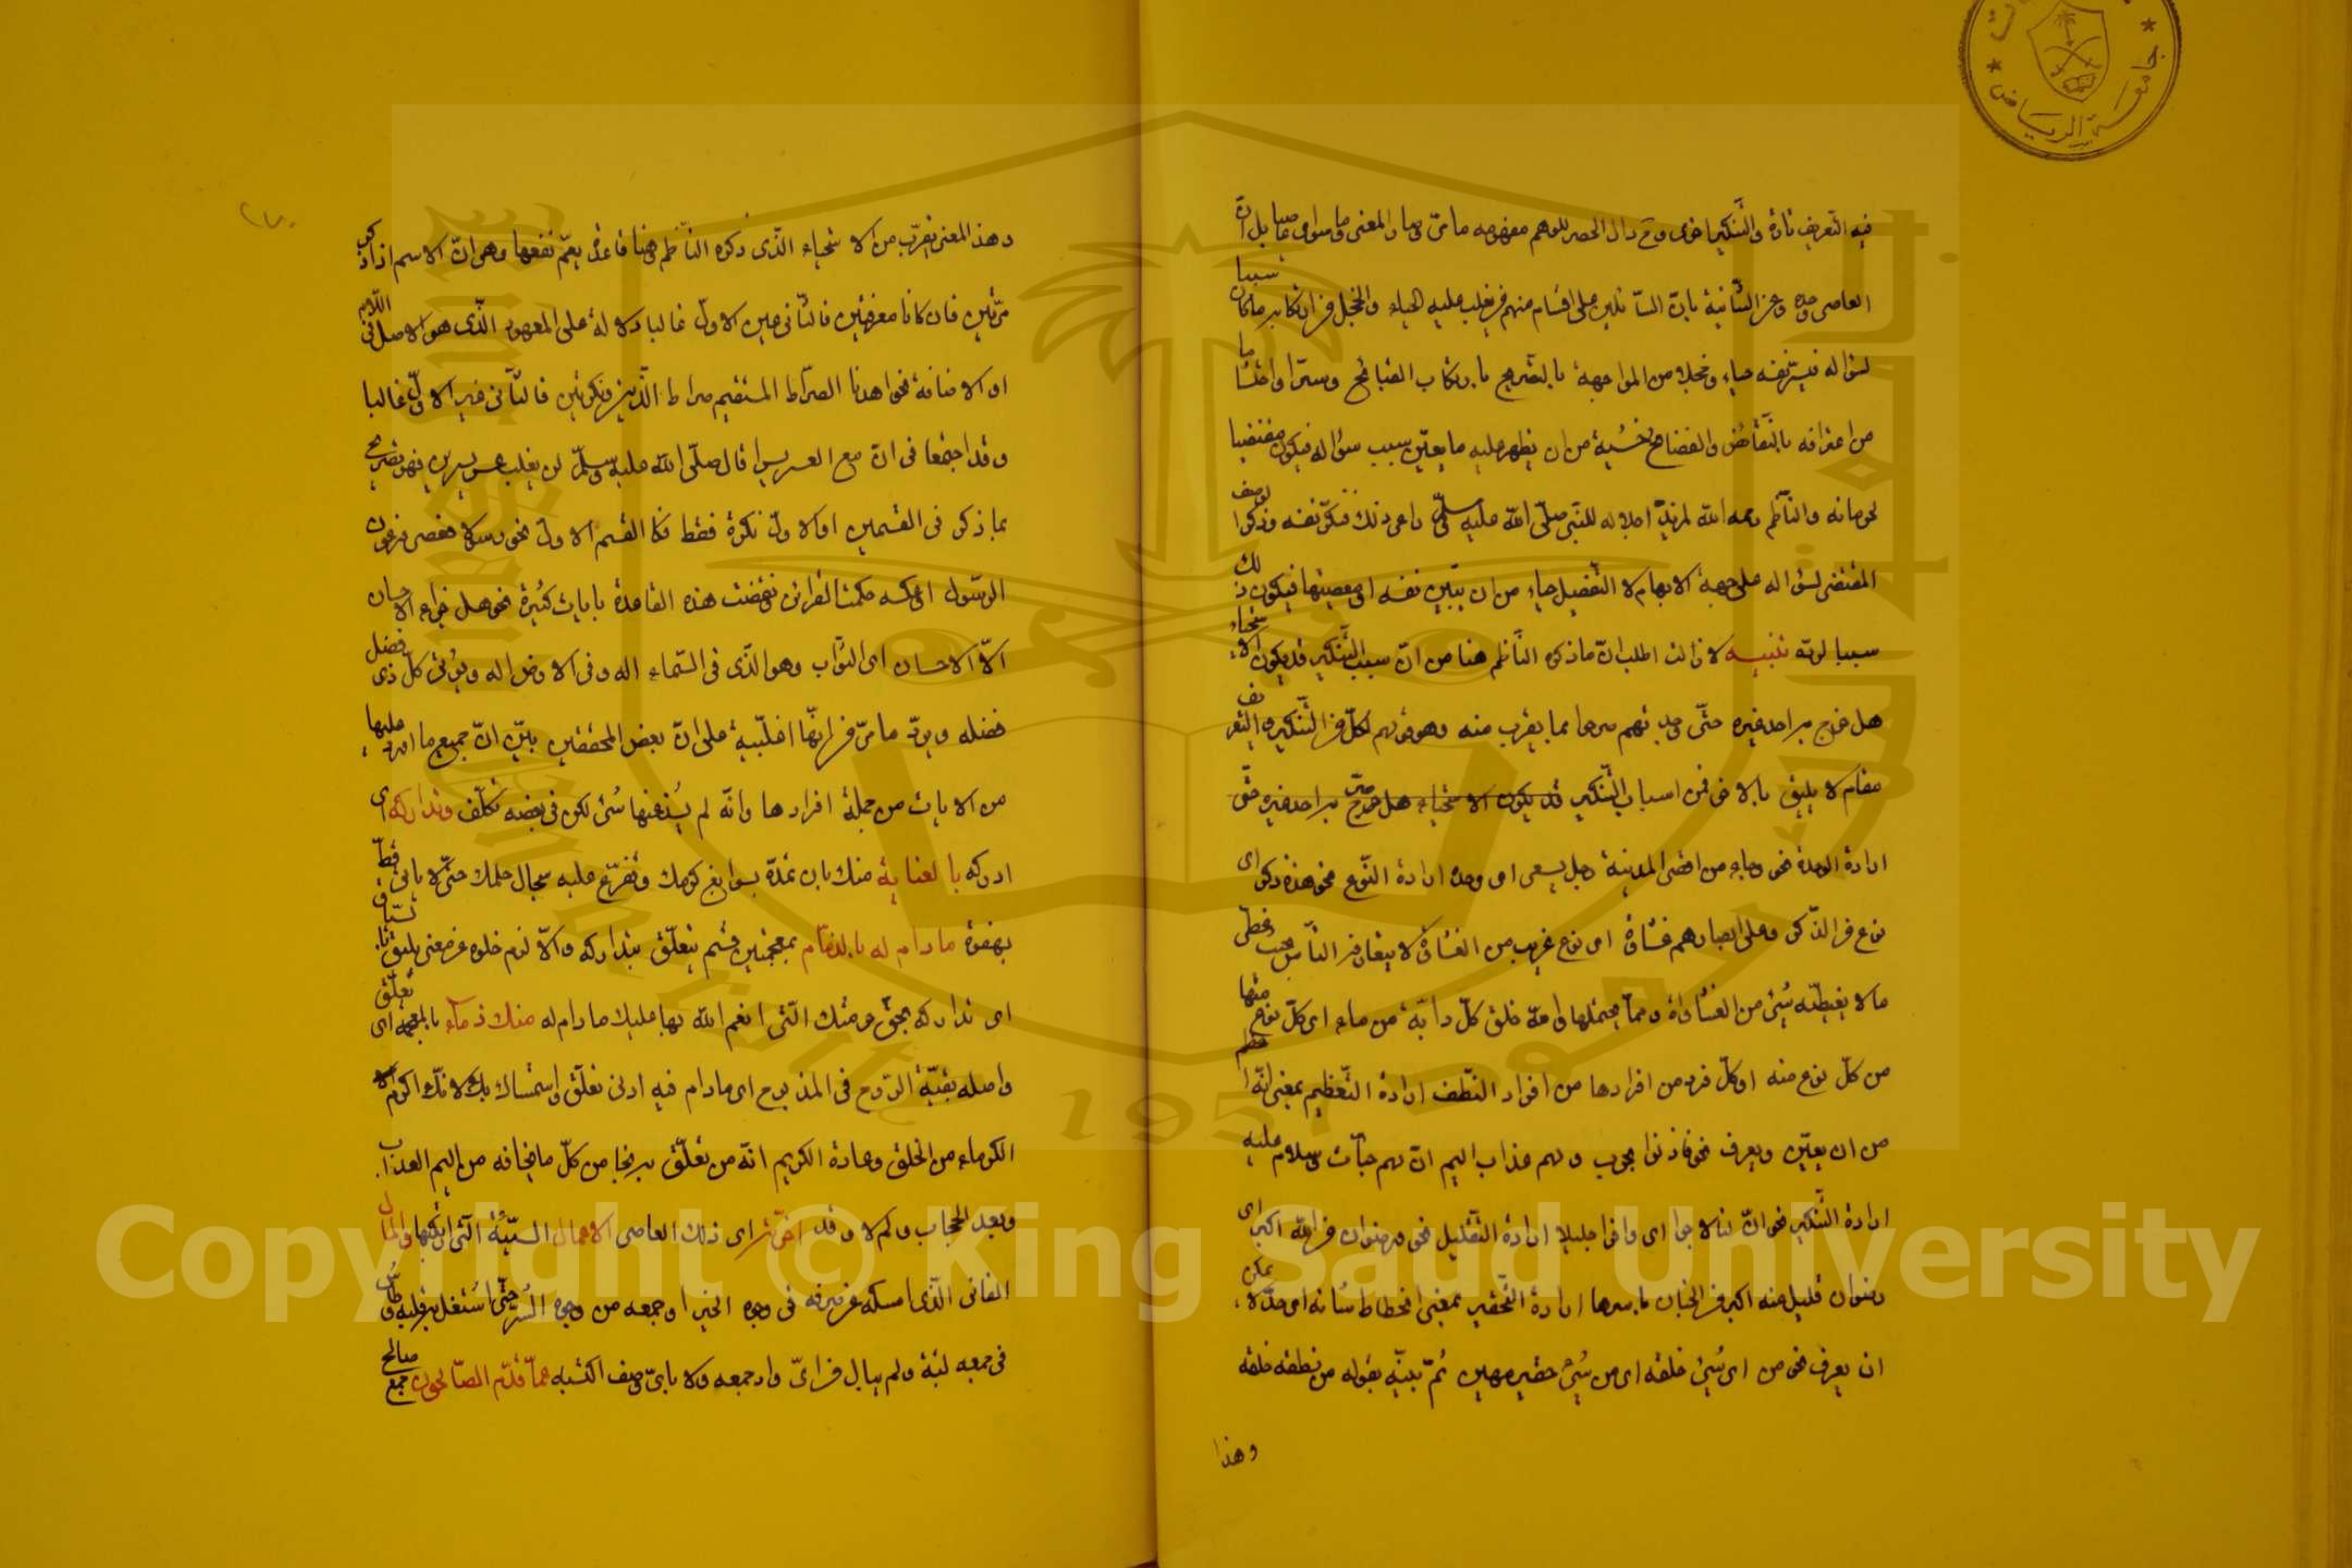 فيه التعريف تارة والتنكير اخرى
العاصى وعن الثانية بان السائلين على اقسام منهم من يغلب عليه الحياء والخجل من ارتكابه ما كان سببا
لسؤاله فيستر نفسه حياء وخجلا من المواجهة بالتصريح بارتكاب القبائح وسترا واحتشاما
من اعترافه بالنقائص والفضائح وخشية من ان يظهر عليه ما يعين سبب سؤاله فيكون مقتضيا
لحرمانه والناظم رحمه الله لمزيد اجلاله للنبى صلى الله عليه وسلم راعى ذلك فنكر نفسه وذكر الوصف
المقتضى لسؤاله على جهة الابهام لا التفصيل حياء من ان يتبين نفسه او معصيتها فيكون ذلك
سببا لرده تنبيه لا زالت اطلب ان ما ذكره الناظم هنا من ان سبب التنكير قد يكون الاستحياء
هل خرج به احد غيره حتى وجدتهم صرحوا بما يقرب منه وهو قولهم لكل من التنكير والتعريف
مقام لا يليق بالاخر فمن اسباب التنكير قد يكون الاستحياء هل خرج به احد غيره حتى
ارادة الوحدة نحو وجاء من اقصى المدينة رجل يسعى اى واحد ارادة النوع نحو هذا ذكر اى
نوع من الذكر وعلى ابصارهم غشاوة اى نوع غريب من الغشاوة لا يتعارفه الناس بحيث غطى
ما لا يغطيه شئ من الغشاوة ومما يحتملها والله خلق كل دابة من ماء اى كل نوع منها
من كل نوع منه او كل فرد من افرادها من افراد النطف ارادة التعظيم بمعنى انه اعظم
من ان يعين ويعرف نحو فاذنوا بحرب ولهم عذاب اليم ان لهم جنات وسلام عليه
ارادة التكثير نحو ان لنا لاجرا اى وافرا جليلا ارادة التقليل نحو ورضوان من الله اكبر اى
رضوان قليل منه اكبر من الجنان باسرها ارادة التحقير بمعنى انحطاط شانه الى حد لا يمكن
ان يعرف نحو من اى شئ خلقه اى من شئ حقير مهين ثم بينه بقوله من نطفة خلقه
وهذا
وهذا المعنى يقرب من الاستحياء الذى ذكره الناظم وهنا قاعدة يعم نفعها وهى ان الاسم اذا ذكر
مرتين فان كانا معرفتين فالثانى عين الاول غالبا دلالة على المعهود الذى هو الاصل فى اللام
او الاضافة نحو اهدنا الصراط المستقيم صراط الذين او نكرتين فالثانى غير الاول غالبا
وقد اجتمعا فى ان مع العسر يسرا قال صلى الله عليه وسلم لن يغلب عسر يسرين فهو تصريح
بما ذكر فى القسمين او الاول نكرة فقط فكالقسم الاول نحو رسولا فعصى فرعون
الرسول او عكسه حكمت القرائن ونقضت هذه القاعدة بايات كثيرة نحو هل جزاء الاحسان
الا الاحسان اى الثواب وهو الذى فى السماء اله وفى الارض اله ويؤتى كل ذى فضل
فضله ويرد ما مر من انها اغلبية على ان بعض المحققين بين ان جميع ما اورد عليها
من الايات من جملة افرادها وانه لم يشذ عنها شئ لكن فى بعضه تكلف وتداركه اى
ادركه بالعناية منك بان تمده بسوابغ كرمك وتفرغ عليه سجال حلمك حتى لا ياتى قط
بهفوة ما دام له بالذمام بمعجمتين قسم يتعلق بتداركه والا لزم خلوه عن معنى يليق
اى تداركه بحق حرمتك التى انعم الله بها عليك ما دام له منك ذماء بالمعجمة اى تعلق
واصله بقية الروح فى المذبوح اى ما دام فيه ادنى تعلق واستمساك بك لانك اكرم
الكرماء من الخلق وعادة الكريم انه من تعلق به نجا من كل ما يخافه من اليم العذاب
وبعد الحجاب ولم لا وقد اخرته اى ذلك العاصى الاعمال السيئة التى ارتكبها والمال
الفانى الذى امسكه عن صرفه فى وجوه الخير او جمعه من وجوه الشر حتى اشتغل به قلبه
فى جمعه لبه ولم يبال من اى واد جمعه ولا باى وصف اكتسبه عما قدم الصالحون جمع صالح